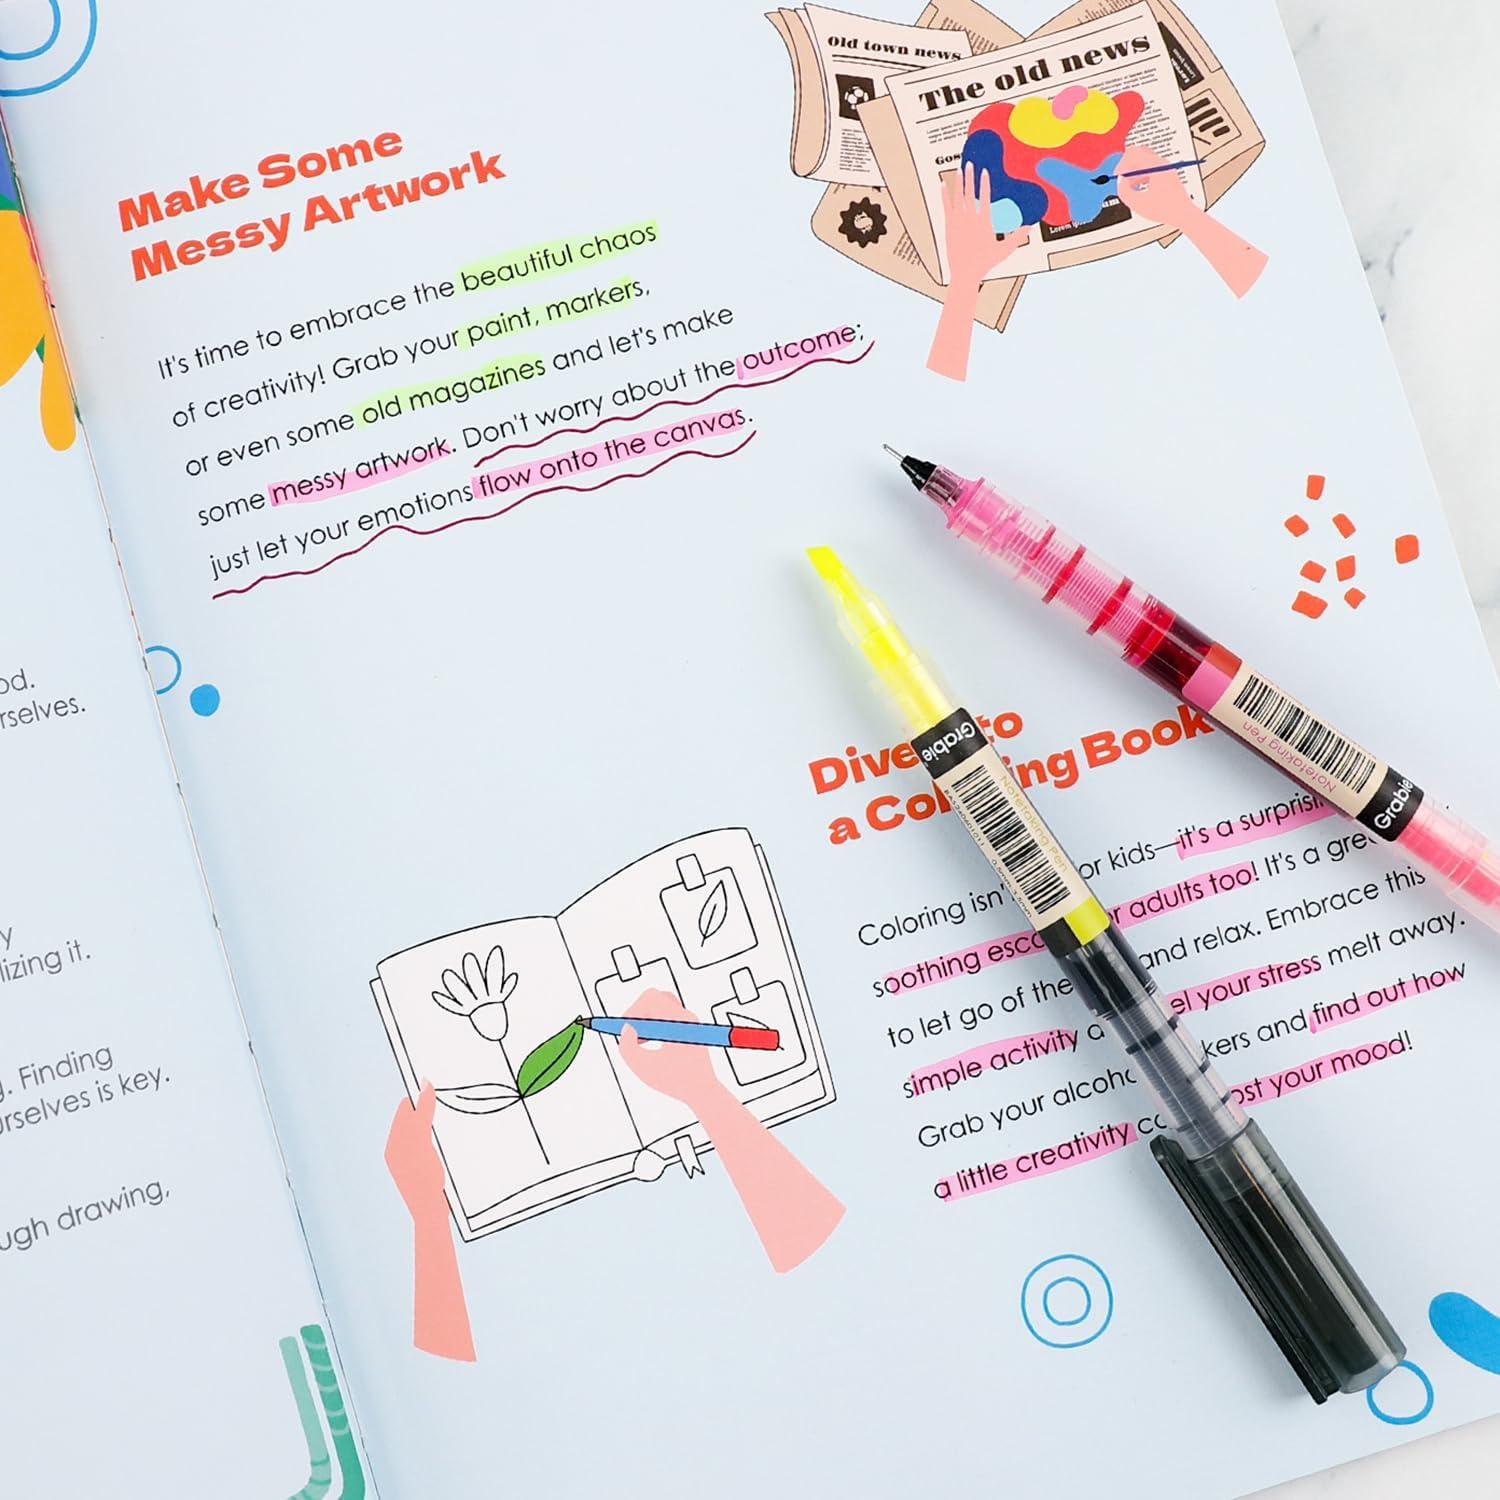 Old town news
The old news
Make Some
Messy Artwork
It's time to embrace the beautiful chaos
of creativity! Grab your paint, markers,
or even some old magazines and let's make
some messy artwork. Don't worry about the outcome;
just let your emotions flow onto the canvas.
od.
rselves.
y
lizing it.
g. Finding
urselves is key.
ugh drawing,
Dive to
a Co ing Book
Coloring isn' or kids—it's a surprisi
soothing esc r adults too! It's a gre
to let go of the and relax. Embrace this
simple activity a el your stress melt away.
Grab your alcoho kers and find out how
a little creativity co ost your mood!
Grabie
Notetaking Pen
0.5mm
Notetaking Pen
Grabie